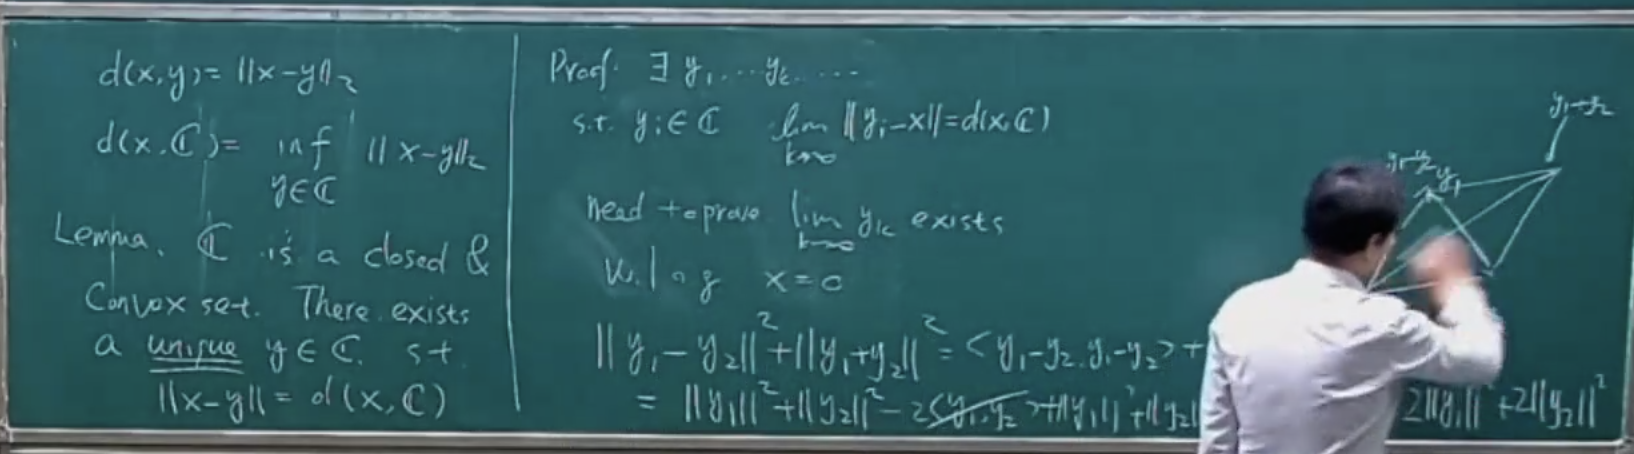 d(x,y)= ||x-y||₂
d(x,ℂ)= inf ||x-y||₂
y∈ℂ
Lemma. ℂ is a closed &
Convex set. There exists
a unique y∈ℂ. s.t.
||x-y||= d(x,ℂ)
Proof. ∃ y₁...yₖ.....
s.t. yᵢ∈ℂ lim ||yᵢ-x||=d(x,ℂ)
k→∞
need to prove lim yₖ exists
k→∞
w.l.o.g x=0
||y₁-y₂||²+||y₁+y₂||²=<y₁-y₂.y₁-y₂>+
= ||y₁||²+||y₂||²-2<y₁,y₂>+||y₁||²+||y₂||
2||y₁||²+2||y₂||²
y₁+y₂
y₁